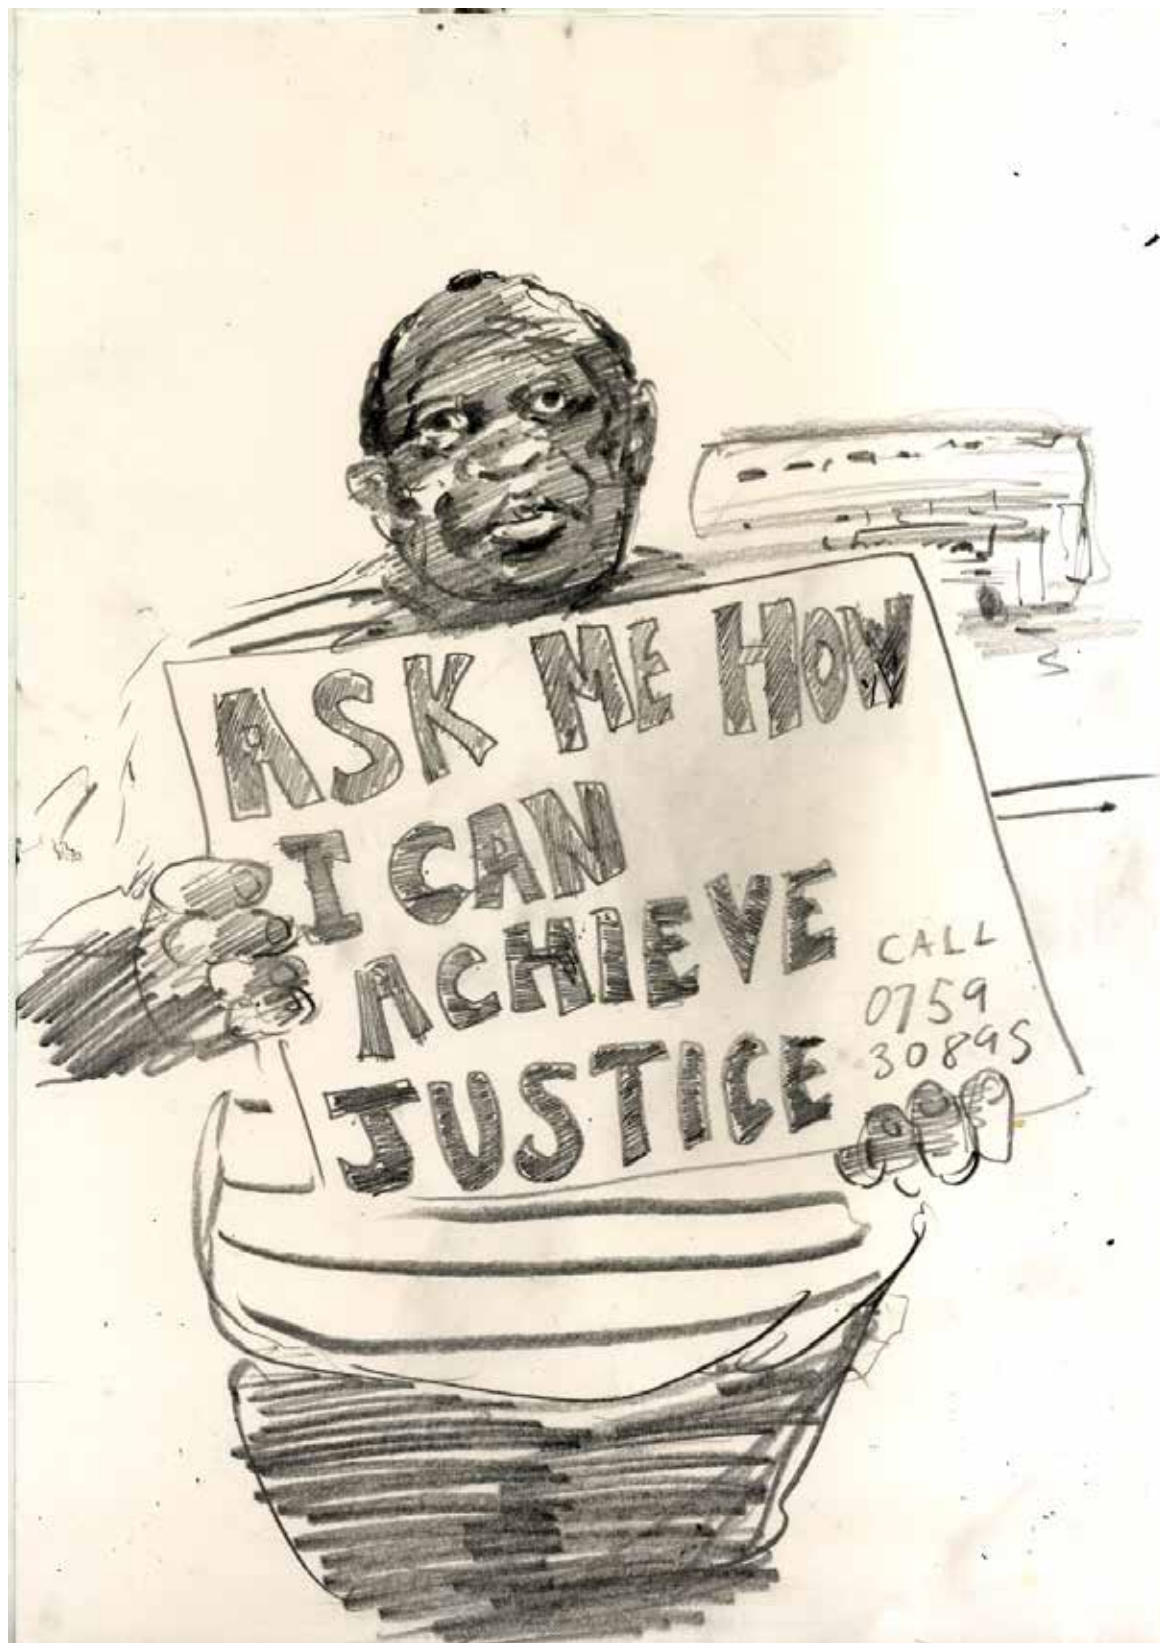 ASK ME HOW
I CAN
ACHIEVE
JUSTICE
CALL
0759
30895